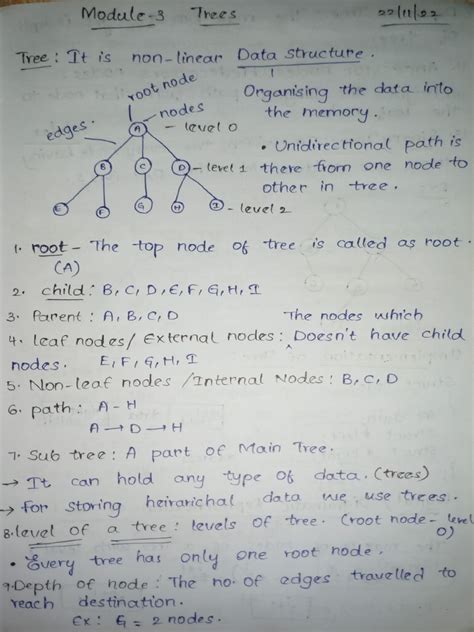 Module-3 Trees 22/11/22
Tree : It is non-linear Data structure.
root node
Organising the data into
the memory.
nodes
edges.
A - level 0
• Unidirectional path is
there from one node to
other in tree.
B C D - level 1
E F G H I - level 2
1. root - The top node of tree is called as root.
(A)
2. child : B, C, D, E, F, G, H, I
3. Parent : A, B, C, D
The nodes which
4. leaf nodes/ External nodes : Doesn't have child
nodes. E, F, G, H, I
5. Non-leaf nodes /Internal Nodes : B, C, D
6. path : A - H
A → D → H
7. Sub tree : A part of Main Tree.
→ It can hold any type of data. (trees)
→ for storing heirarichal data we use trees.
8. level of a tree : levels of tree. (root node - level
0)
• Every tree has only one root node.
9. Depth of node : The no. of edges travelled to
reach destination.
Ex : G = 2 nodes.